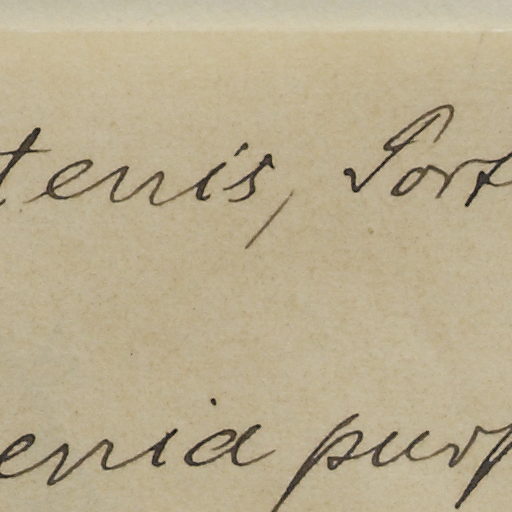 tenis, Port
enia purp